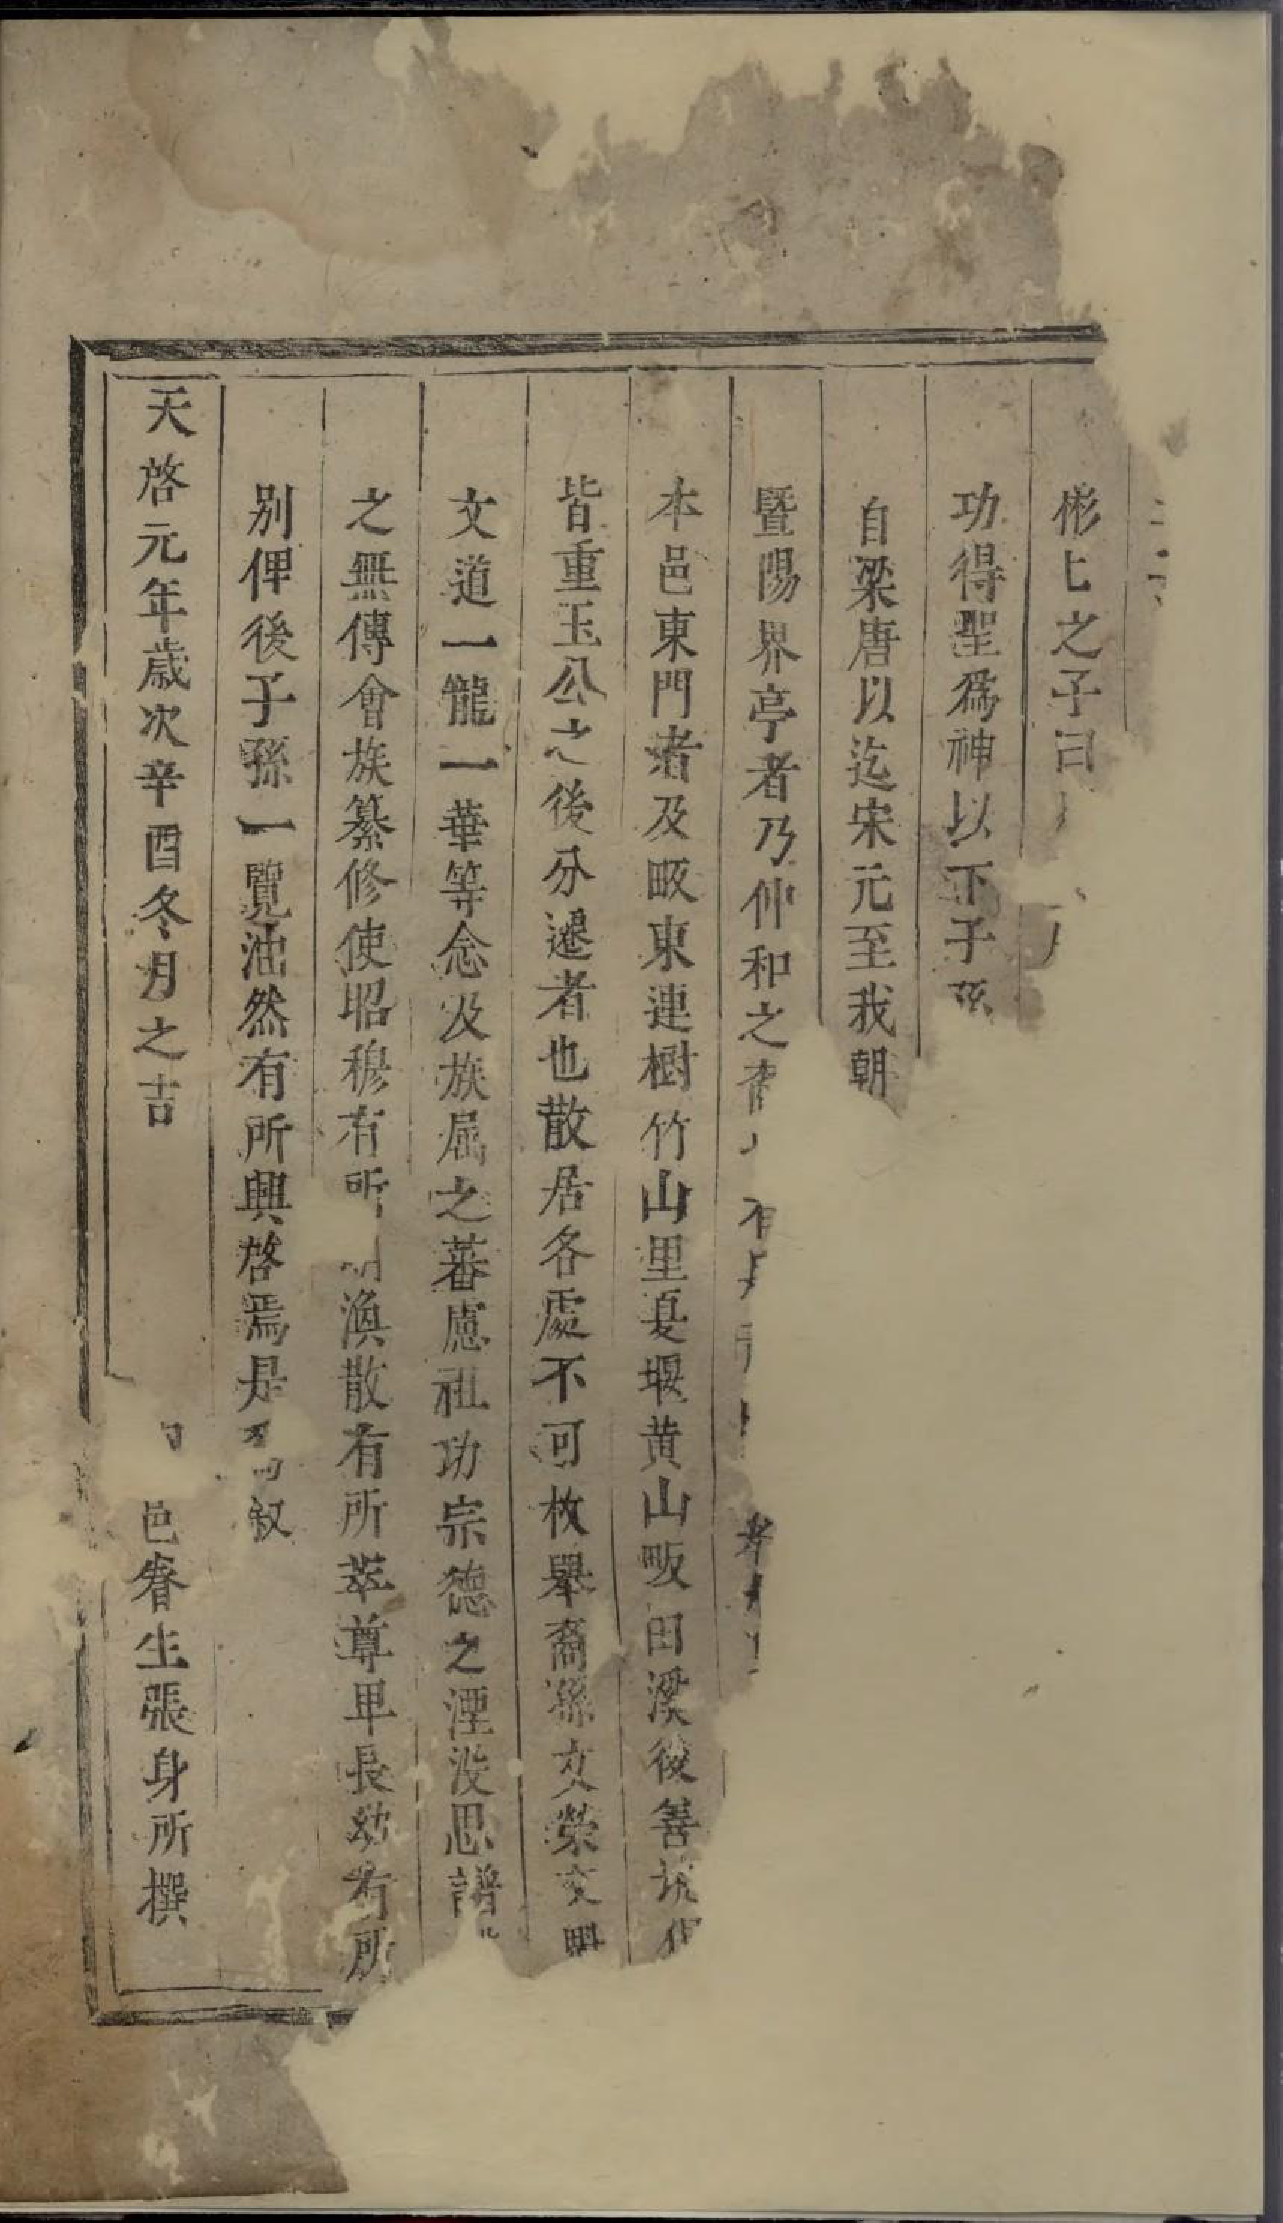 彬匕之子曰
功得聖爲神以下子孫
自梁唐以迄宋元至我朝
暨陽界亭者乃仲和之裔
本邑東門者及畈東連樹竹山里夏堰黄山畈田溪後善坑
皆重玉公之後分遷者也散居各處不可枚舉裔孫文榮文明
文道一龍一華等念及族屬之蕃慮祖功宗德之湮没思譜
之無傳會族纂修使昭穆有所 渙散有所萃尊卑長幼有所
别俾後子孫一覽油然有所興啓焉是爲叙
天啓元年歲次辛酉冬月之吉 邑眷生張身所撰